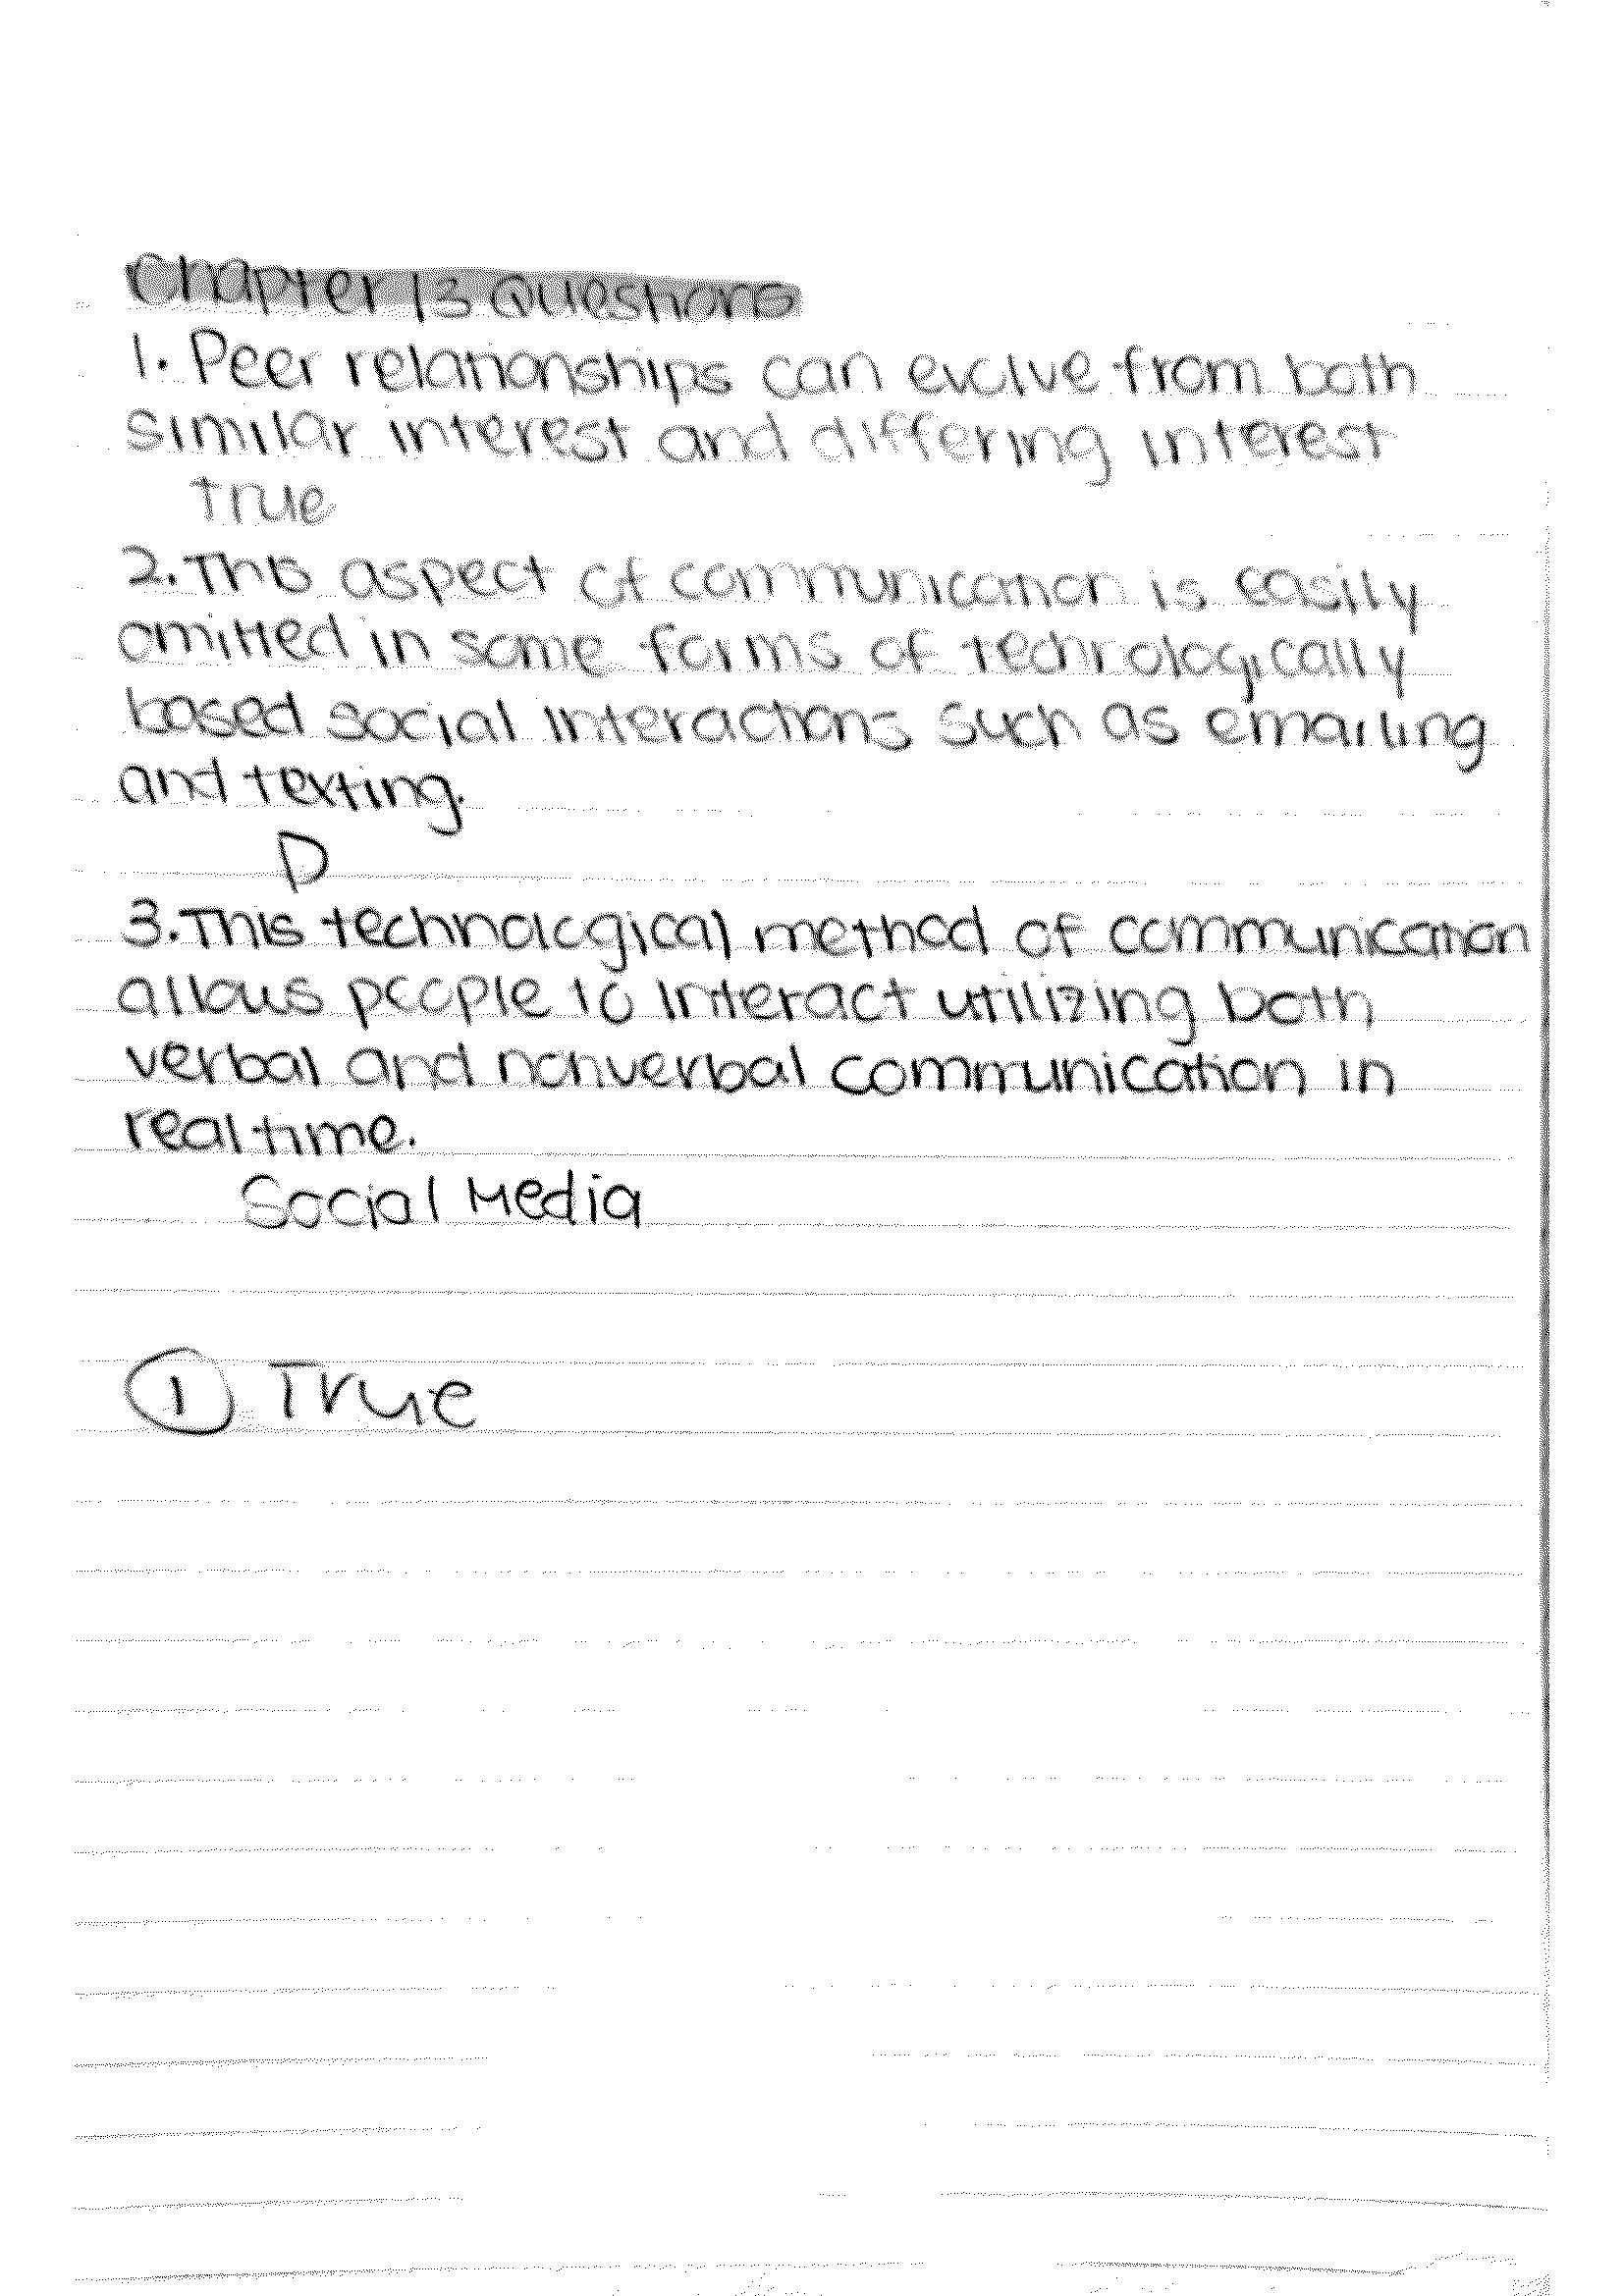 Chapter 13 Questions
1. Peer relationships can evolve from both
similar interest and differing interest
True
2. This aspect of communication is easily
omitted in some forms of technologically
based social interactions such as emailing
and texting.
D
3. This technological method of communication
allows people to interact utilizing both
verbal and nonverbal communication in
real time.
Social Media
① True